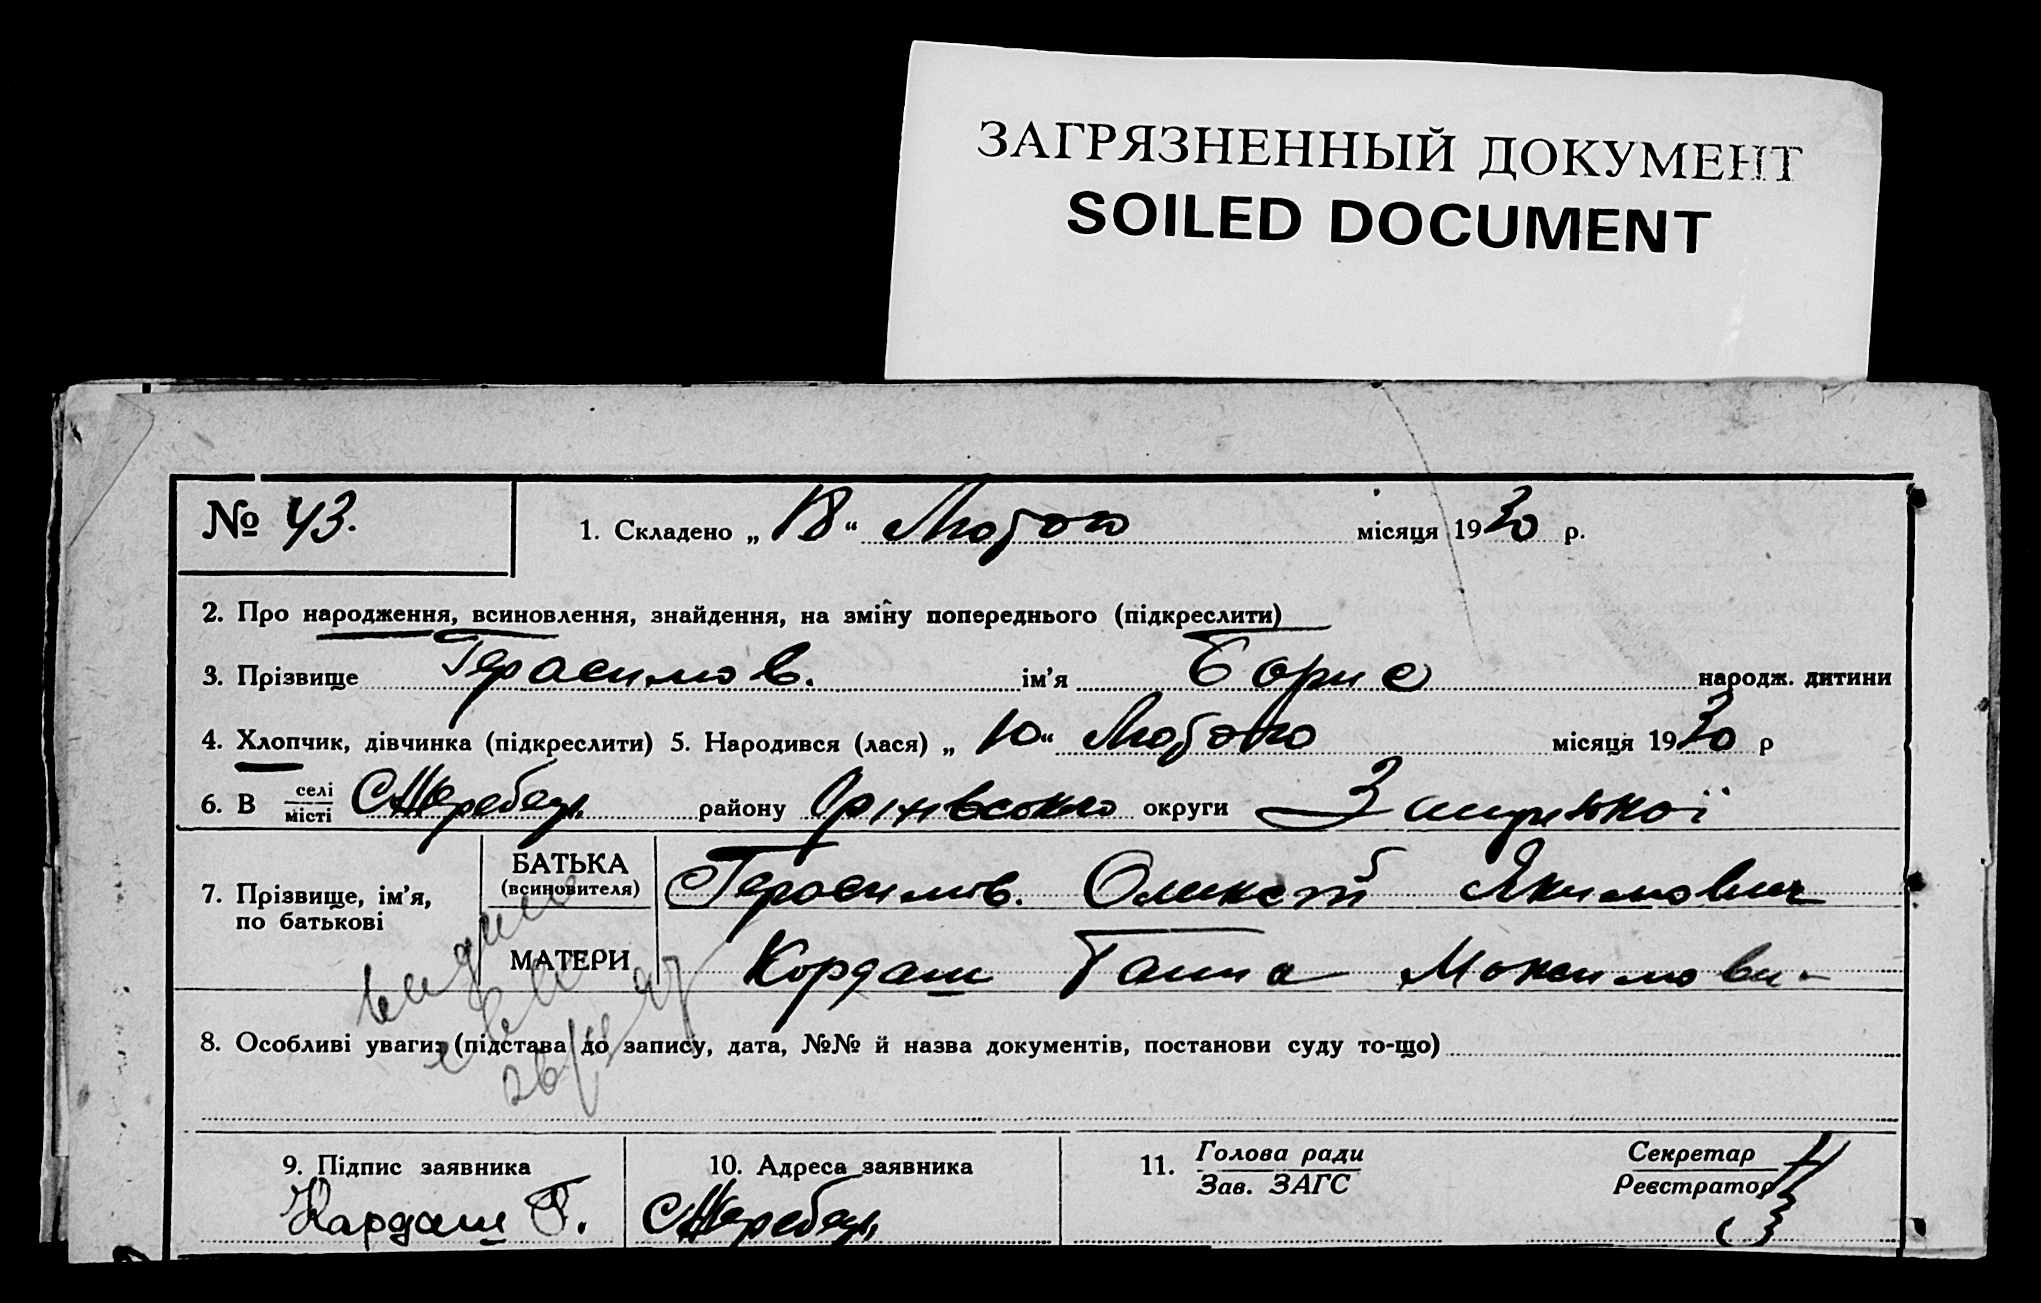 ЗАГРЯЗНЕННЫЙ ДОКУМЕНТ
SOILED DOCUMENT
№ 43. 1. Складено „ 18 “ Лютого місяця 1930 р.
2. Про народження, всиновлення, знайдення, на зміну попереднього (підкреслити)
3. Прізвище Герасимов. ім’я Борис народж. дитини
4. Хлопчик, дівчинка (підкреслити) 5. Народився (лася) „ 10 “ Лютого місяця 1930 р
6. В селі місті Жеребець району Оріхівсокого округи Запорізької
7. Прізвище, ім’я, по батькові
БАТЬКА (всиновителя) Герасимов. Олексій Якимович
МАТЕРИ Кордаш Ганна Максимовн-
8. Особливі уваги: (підстава до запису, дата, №№ й назва документів, постанови суду то-що)
9. Підпис заявника 10. Адреса заявника 11. Голова ради Секретар
Зав. ЗАГС Реєстратор
Кардаш Г. Жеребець